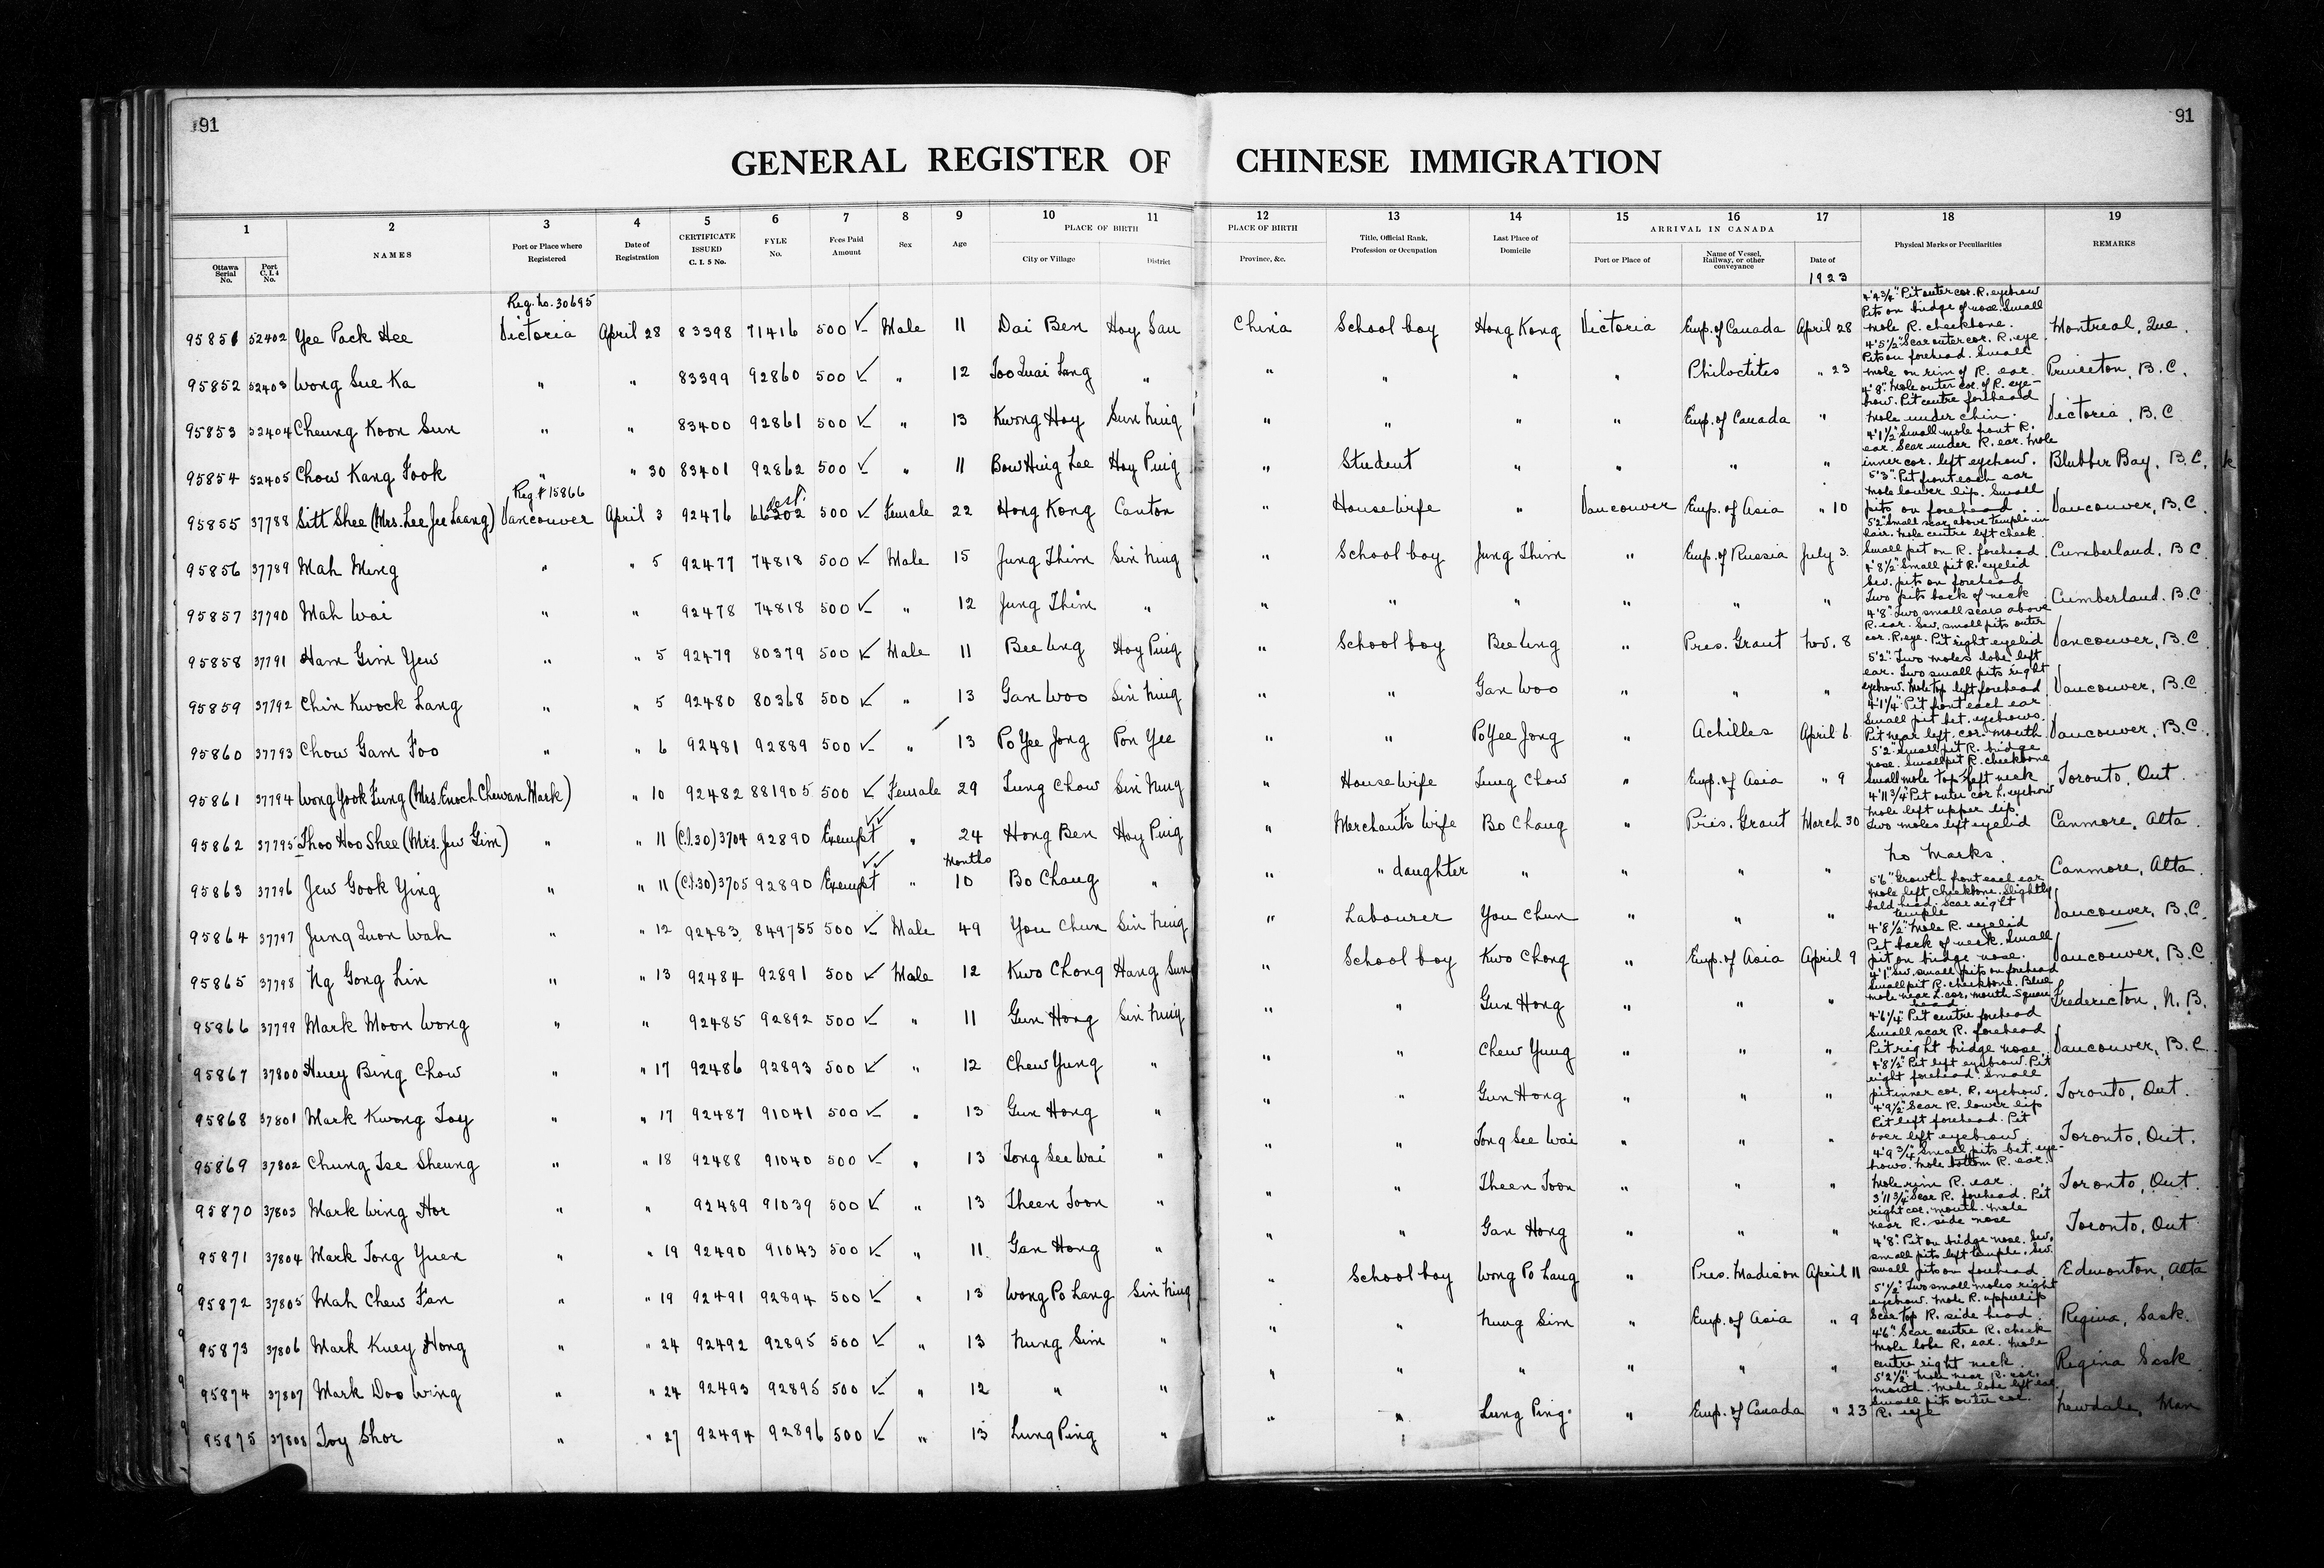 91
91
GENERAL REGISTER OF CHINESE IMMIGRATION
1 2 3 4 5 6 7 8 9 10 11 12 13 14 15 16 17 18 19
Ottawa Serial No. Port C.I.4 No. NAMES Port or Place where Registered Date of Registration CERTIFICATE ISSUED C. I. 5 No. FYLE No. Fees Paid Amount Sex Age PLACE OF BIRTH City or Village District PLACE OF BIRTH Province, &c. Title, Official Rank, Profession or Occupation Last Place of Domicile ARRIVAL IN CANADA Port or Place of Name of Vessel, Railway, or other conveyance Date of 1923 Physical Marks or Peculiarities REMARKS
Reg. No. 30695
95851 52402 Yee Pack Hee Victoria April 28 83398 71416 500 ✓ Male 11 Dai Ben Hoy San China School boy Hong Kong Victoria Emp. of Canada April 28 4'4¾" Pit outer cor. R. eyebrow Pits on bridge of nose. Small mole R. cheekbone. Montreal, Que.
95852 52403 Wong Sue Ka " " 83399 92860 500 ✓ " 12 Too Quai Lang " " " " " Philoctites " 23 4'5½" Scar outer cor. R. eye Pits on forehead. Small mole on rim of R. ear. Princeton, B.C.
95853 52404 Cheung Koon Sun " " 83400 92861 500 ✓ " 13 Kwong Hoy Sun Ning " " " " Emp. of Canada " 4'8" Mole outer cor. of R. eye-brow. Pit centre forehead Mole under chin. Victoria, B.C.
95854 52405 Chow Kang Fook " " 30 83401 92862 500 ✓ " 11 Bow Hing Lee Hoy Ping " Student " " " " 4'1½" Small mole front R. ear. Scar under R. ear. Mole inner cor. left eyebrow. Blubber Bay, B.C.
Reg # 15866
95855 37788 Sitt Shee (Mrs. Lee Jee Laang) Vancouver April 3 92476 66202 500 ✓ Female 22 Hong Kong Canton " House wife " Vancouver Emp. of Asia " 10 5'3" Pit front each ear mole lower lip. Small pits on forehead. Vancouver, B.C.
95856 37789 Mah Ming " " 5 92477 74818 500 ✓ Male 15 Jung Thim Sin Ning " School boy Jung Thim " Emp. of Russia July 3 5'2" Small scar above temple in hair. Mole centre left cheek. Small pit on R. forehead Cumberland, B.C.
95857 37790 Mah Wai " " 92478 74818 500 ✓ " 12 Jung Thim " " " " " " " 4'8½" Small pit R. eyelid Sev. pits on forehead Two pits back of neck Cumberland, B.C.
95858 37791 Ham Gim Yew " " 5 92479 80379 500 ✓ Male 11 Bee Ung Hoy Ping " School boy Bee Ung " Pres. Grant Nov. 8 4'8" Two small scars above R. ear. Sev. small pits outer cor. R. eye. Pit right eyelid Vancouver, B.C.
95859 37792 Chin Kwock Lang " " 5 92480 80368 500 ✓ " 13 Gan Woo Sin Ning " " Gan Woo " " " 5'2" Two moles lobe left ear. Two small pits right eyebrow. Mole top left forehead Vancouver, B.C.
95860 37793 Chow Gam Foo " " 6 92481 92889 500 ✓ " 13 Po Yee Jong Pon Yee " " Po Yee Jong " Achilles April 6 4'1¼" Pit front each ear Small pit bet. eyebrows. Pit near left. cor. mouth Vancouver, B.C.
95861 37794 Wong Yook Fung (Mrs. Enoch Chewan Mark) " 10 92482 881905 500 ✓ Female 29 Lung Chow Sin Ning " House wife Lung Chow " Emp. of Asia " 9 5'2" Small pit R. bridge nose. Small pit R. cheekbone Small mole top left neck Toronto, Ont.
95862 37795 Thoo Hoo Shee (Mrs. Jew Gim) " " 11 (C.I.30) 3704 92890 Exempt ✓✓ " 24 Hong Ben Hoy Ping " Merchants wife Bo Chang " Pres. Grant March 30 4'11¾" Pit outer cor L. eyebrow Mole left upper lip Two moles left eyelid Canmore, Alta.
95863 37796 Jew Gook Ying " " 11 (C.I.30) 3705 92890 Exempt ✓✓ " Months 10 Bo Chang " " " daughter " " " " No Marks. Canmore, Alta.
95864 37797 Jung Quon Wah " " 12 92483 849755 500 ✓ Male 49 You Chun Sin Ning " Labourer You Chun " " " 5'6" Growth front each ear Mole left cheekbone. Slightly bald head. Scar right temple Vancouver, B.C.
95865 37798 Ng Gong Lin " " 13 92484 92891 500 ✓ Male 12 Kwo Chong Hang Sung " School boy Kwo Chong " Emp. of Asia April 9 4'8½" Mole R. eyelid Pit back of neck. Small pit on bridge nose. Vancouver, B.C.
95866 37799 Mark Moon Wong " " 92485 92892 500 ✓ " 11 Gun Hong Sin Ning " " Gun Hong " " " 4'1" Sev. small pits on forehead Small pit R. cheekbone. Blue mole near L. cor. mouth Square head Fredericton, N.B.
95867 37800 Huey Bing Chow " " 17 92486 92893 500 ✓ " 12 Chew Yung " " " Chew Yung " " " 4'6¼" Pit centre forehead Small scar R. forehead Pit right bridge nose. Vancouver, B.C.
95868 37801 Mark Kwong Toy " " 17 92487 91041 500 ✓ " 13 Gun Hong " " " Gun Hong " " " 4'8½" Pit left eyebrow. Pit right forehead. Small pit inner cor. R. eyebrow. Toronto, Ont.
95869 37802 Chung Tse Sheung " " 18 92488 91040 500 ✓ " 13 Tong See Wai " " " Tong See Wai " " " 4'9½" Scar R. lower lip Pit left forehead. Pit over left eyebrow Toronto, Ont.
95870 37803 Mark Wing Hor " " 92489 91039 500 ✓ " 13 Theen Toon " " " Theen Toon " " " 4'9¾" Small pits bet. eye-brows. Mole bottom R. ear. Mole rim R. ear. Toronto, Ont.
95871 37804 Mark Tong Yuen " " 19 92490 91043 500 ✓ " 11 Gan Hong " " " Gan Hong " " " 3'11¾" Scar R. forehead. Pit right cor. mouth. Mole near R. side nose Toronto, Ont
95872 37805 Mah Chew Fan " " 19 92491 92894 500 ✓ " 13 Wong Po Lang Sin Ning " School boy Wong Po Lang " Pres. Madison April 11 4'8" Pit on bridge nose. Sev. small pits left temple. Sev. small pits on forehead Edmonton, Alta
95873 37806 Mark Kuey Hong " " 24 92492 92895 500 ✓ " 13 Nung Sim " " " Nung Sim " Emp. of Asia " 9 5'½" Two small moles right eyebrow. Mole R. upper lip Scar top R. side head. Regina, Sask.
95874 37807 Mark Doo Wing " " 24 92493 92895 500 ✓ " 12 " " " " " " " " 4'6" Scar centre R. cheek Mole lobe R. ear. Mole centre right neck. Regina Sask
95875 37808 Toy Shor " " 27 92494 92896 500 ✓ " 13 Lung Ping " " " Lung Ping " Emp. of Canada " 23 5'2½" Mole near R. cor. mouth. Mole lobe left ear. Small pits outer cor. R. eye Newdale, Man